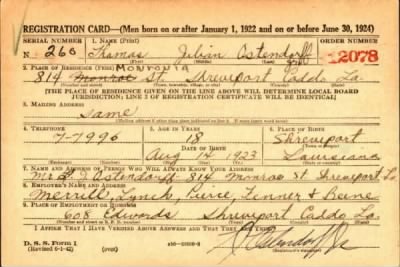 REGISTRATION CARD—(Men born on or after January 1, 1922 and on or before June 30, 1924)
SERIAL NUMBER 1. NAME (Print) ORDER NUMBER
260 Thomas Ostendorff 12078
(First) (Middle) (Last)
2. PLACE OF RESIDENCE (Print) MONROVIA
814 Monroe St. Shreveport Caddo La
[THE PLACE OF RESIDENCE GIVEN ON THE LINE ABOVE WILL DETERMINE LOCAL BOARD
JURISDICTION; LINE 2 OF REGISTRATION CERTIFICATE WILL BE IDENTICAL]
3. MAILING ADDRESS
Same
4. TELEPHONE 5. AGE IN YEARS 6. PLACE OF BIRTH
7-7996 18 Shreveport
DATE OF BIRTH
Aug 14 1923 Louisiana
7. NAME AND ADDRESS OF PERSON WHO WILL ALWAYS KNOW YOUR ADDRESS
Ostendorff 814 Monroe St Shreveport La
8. EMPLOYER'S NAME AND ADDRESS
Merrill, Lynch, Pierce, Fenner & Beane
9. PLACE OF EMPLOYMENT OR BUSINESS
608 Edwards Shreveport Caddo La.
I AFFIRM THAT I HAVE VERIFIED ABOVE ANSWERS AND THAT THEY ARE TRUE.
D. S. S. Form 1
(Revised 6-1-42) (over)